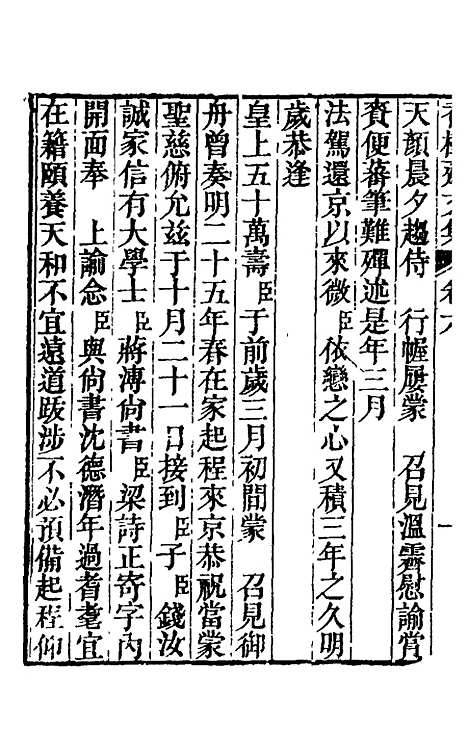 天顏晨夕趨侍　行幄屢蒙　召見溫霽慰諭賞
賚便蕃筆難殫述是年三月
法駕還京以來微臣依戀之心又積三年之久明
歲恭逢
皇上五十萬壽臣于前歲三月初間蒙　召見御
舟曾奏明二十五年春在家起程來京恭祝當蒙
聖慈俯允兹于十月二十一日接到臣子臣錢汝
誠家信有大學士臣蔣溥尙書臣梁詩正寄字內
開面奉　上諭念臣與尙書沈德潛年過耆耄宜
在籍頤養天和不宜遠道跋涉不必預備起程仰